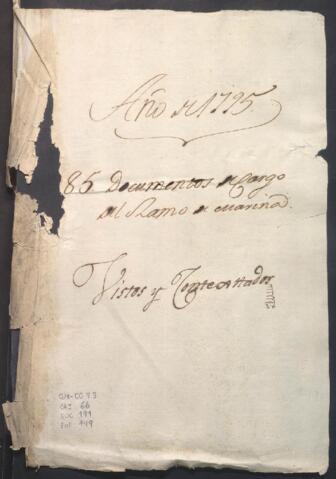 Año de 1795
85 Documentos de Cargo
del Ramo de Marina
Vistos y
CAJ 66
DOC 191
FOL 449